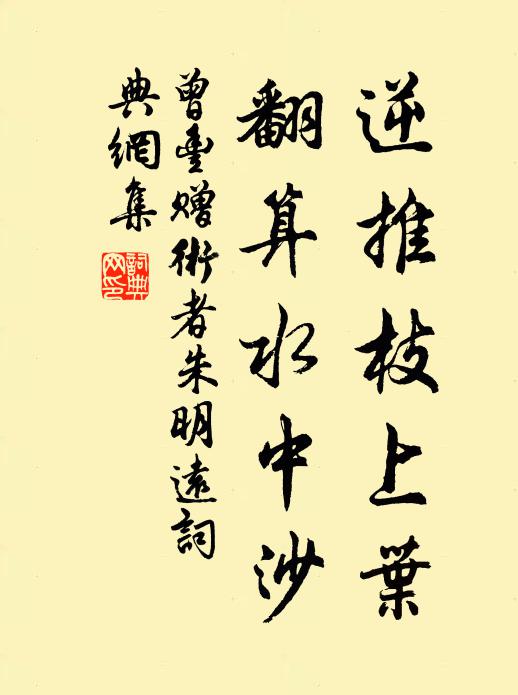 逆推枝上葉
翻算水中沙
曾豐贈術者朱明遠詞
典網集
詞典網印